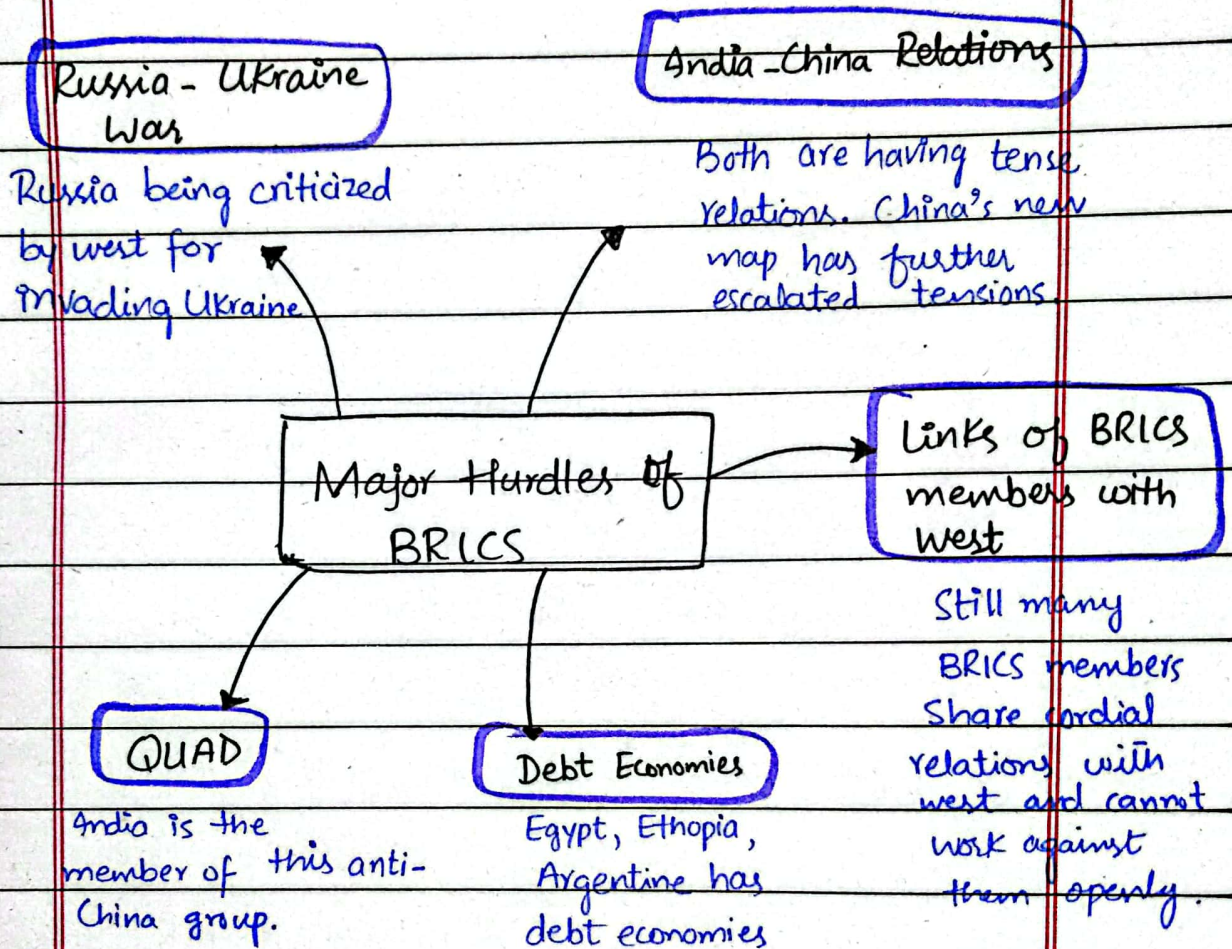 Russia - Ukraine
War
Russia being criticized
by west for
invading Ukraine
India - China Relations
Both are having tense
relations. China's new
map has further
escalated tensions.
Major Hurdles of
BRICS
Links of BRICS
members with
West
Still many
BRICS members
Share cordial
relations with
west and cannot
work against
them openly.
QUAD
India is the
member of this anti-
China group.
Debt Economies
Egypt, Ethopia,
Argentine has
debt economies